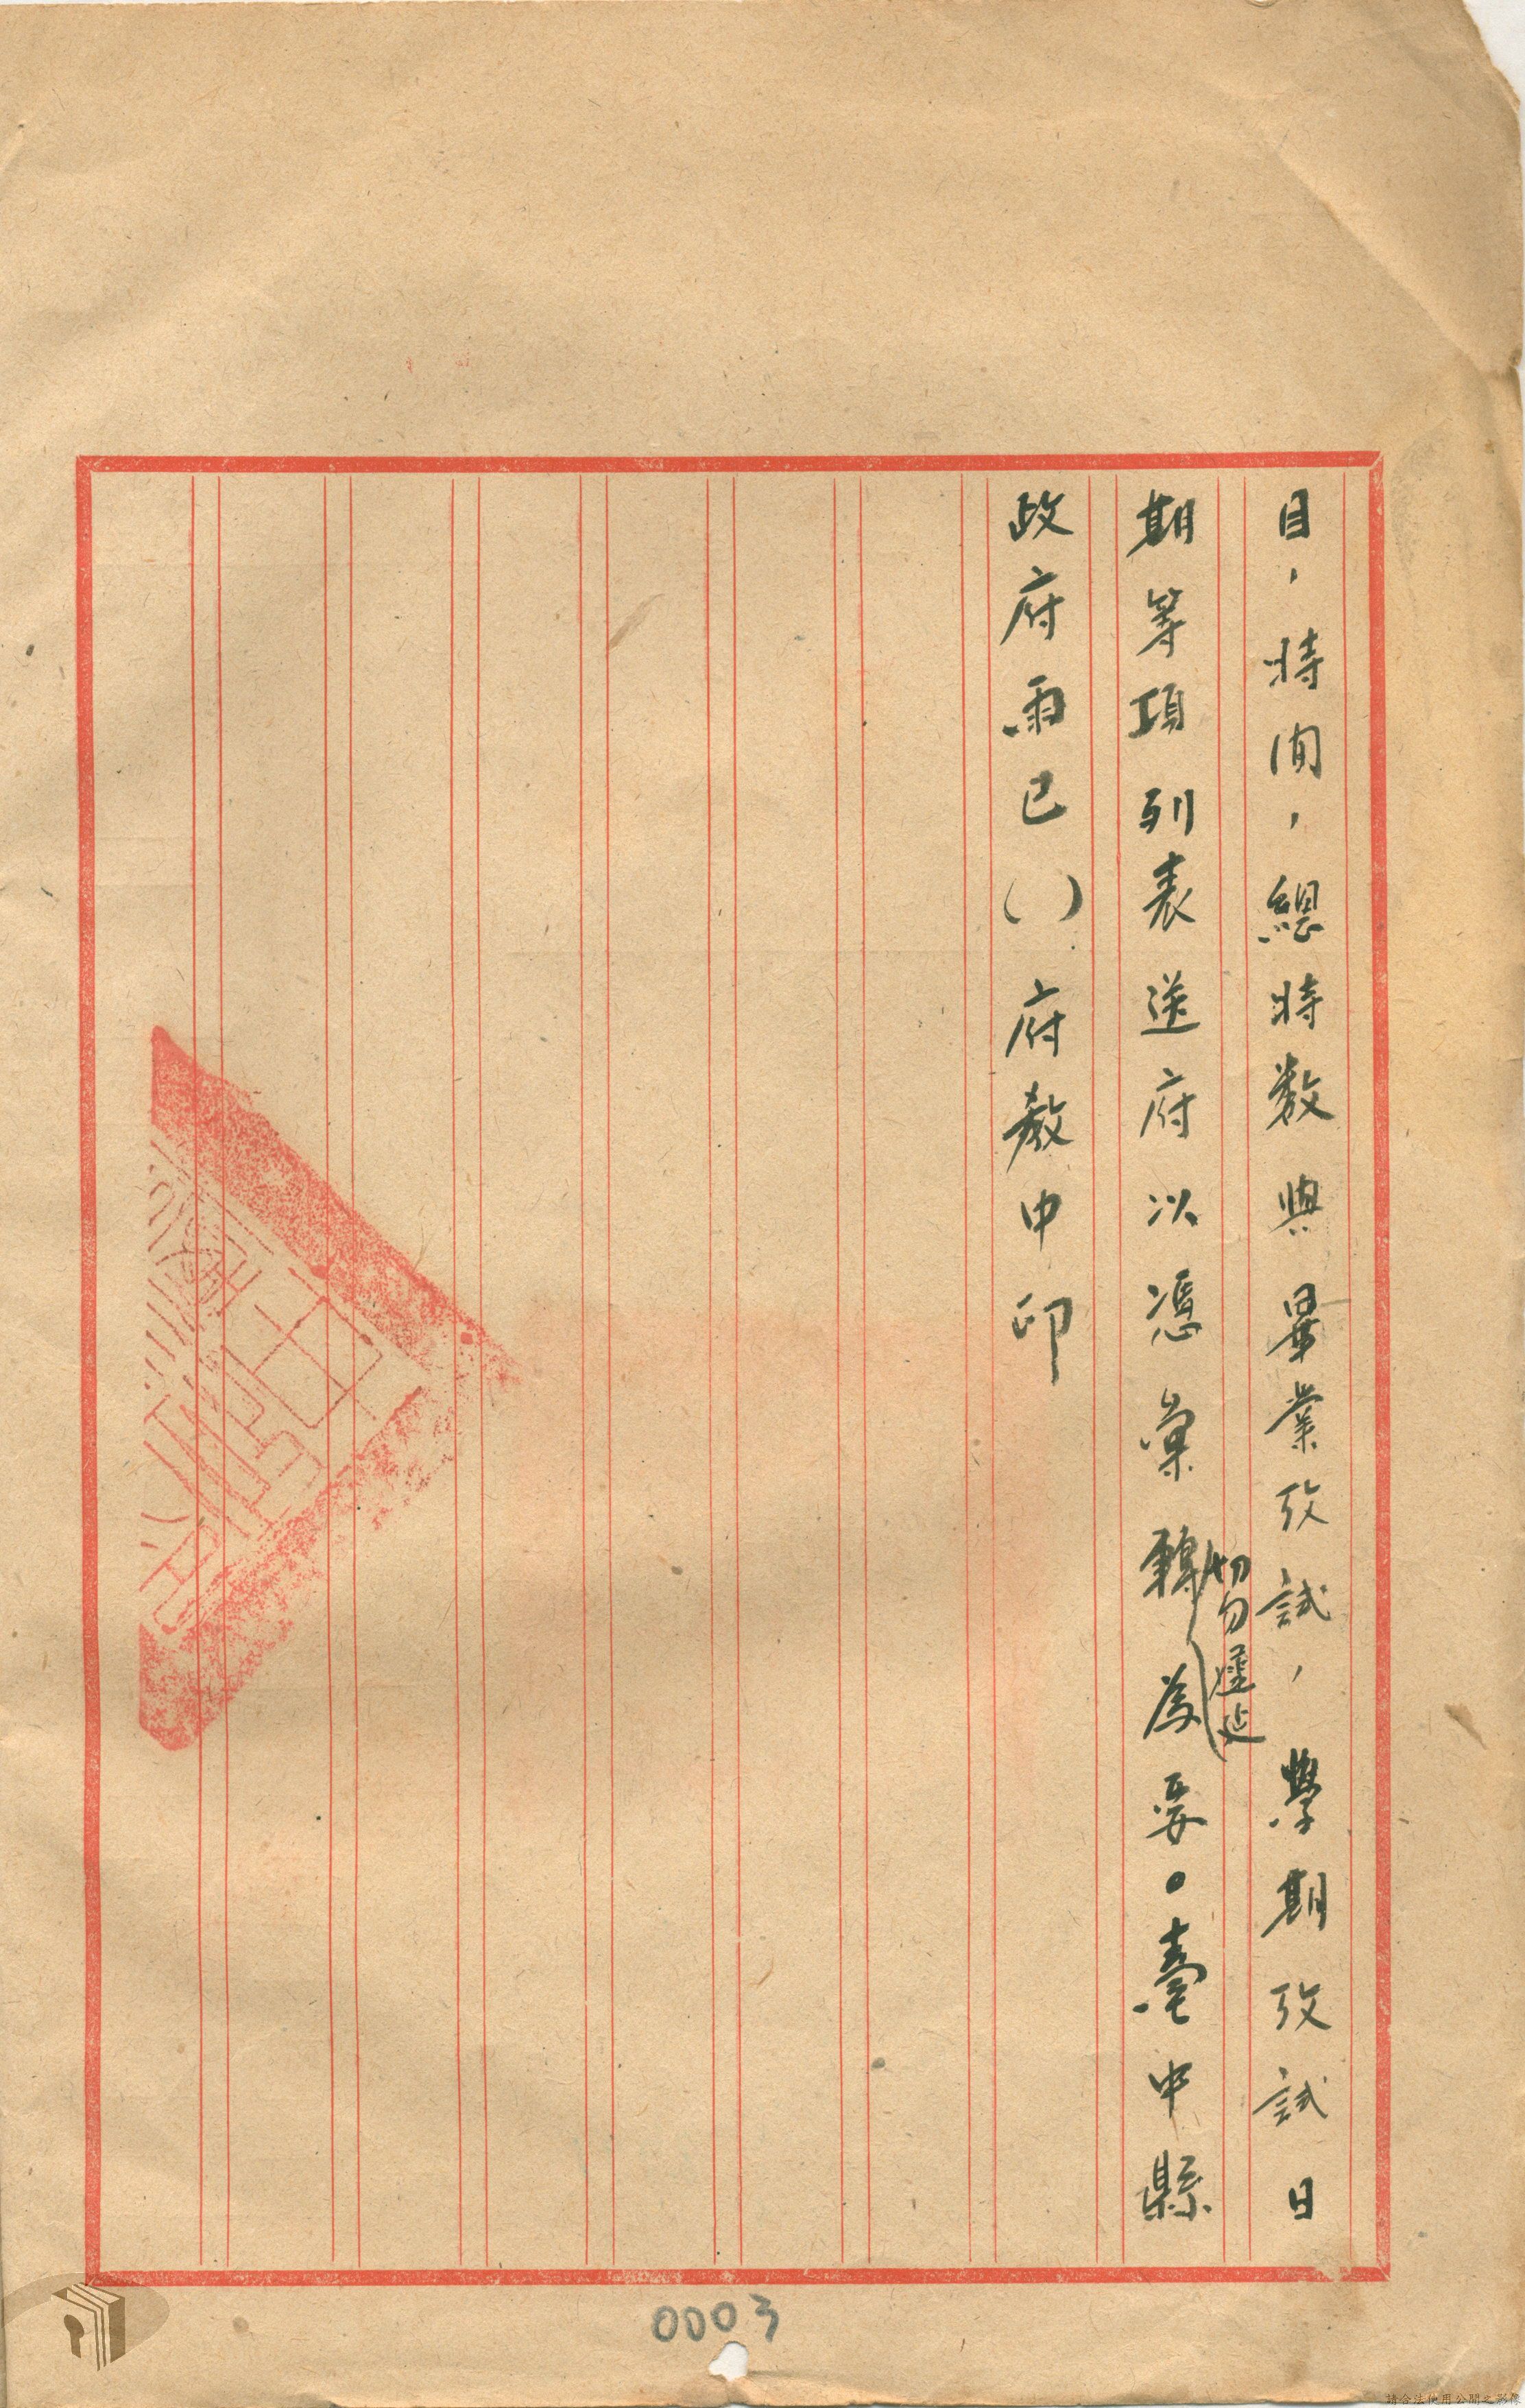 目，時間，總時数與畢業攷試，學期攷試日
期等項列表送府以憑彙轉切勿遲延為要。臺中縣
政府丙巳（）府教中印
0003
請合法使用公開之影像